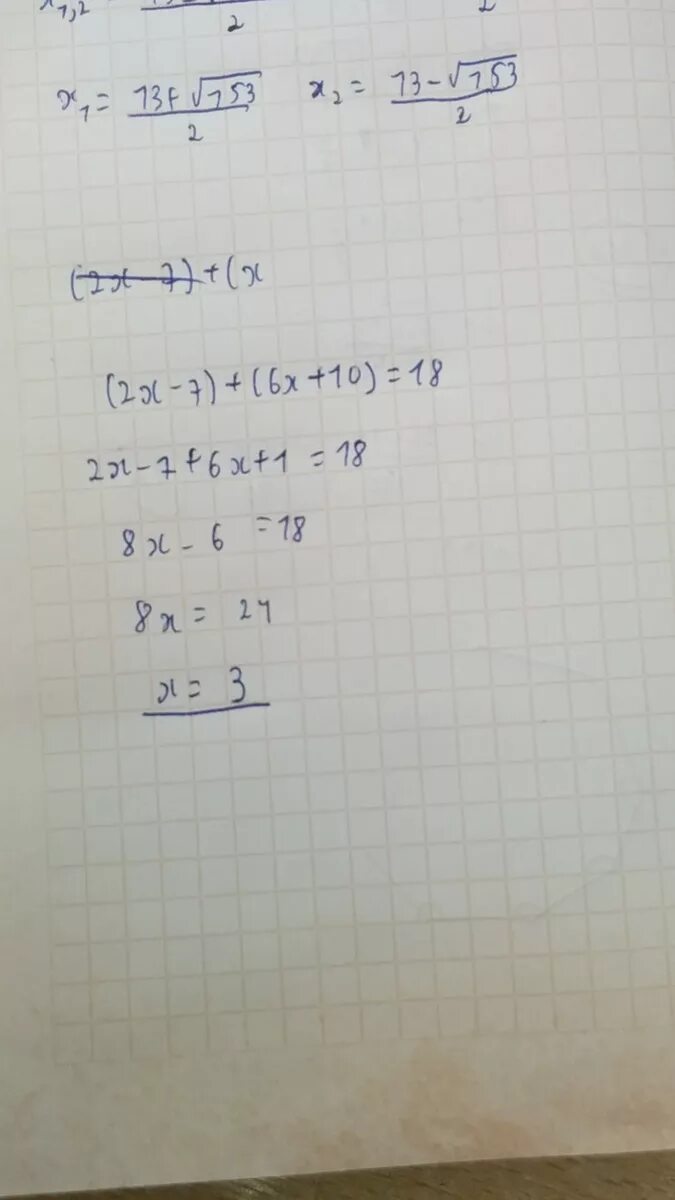 x₁,₂
2
2
x₁ = 13+√153 / 2 x₂ = 13-√153 / 2
(2x-7)+(x
(2x-7)+(6x+10)=18
2x-7+6x+1=18
8x-6=18
8x=24
x=3